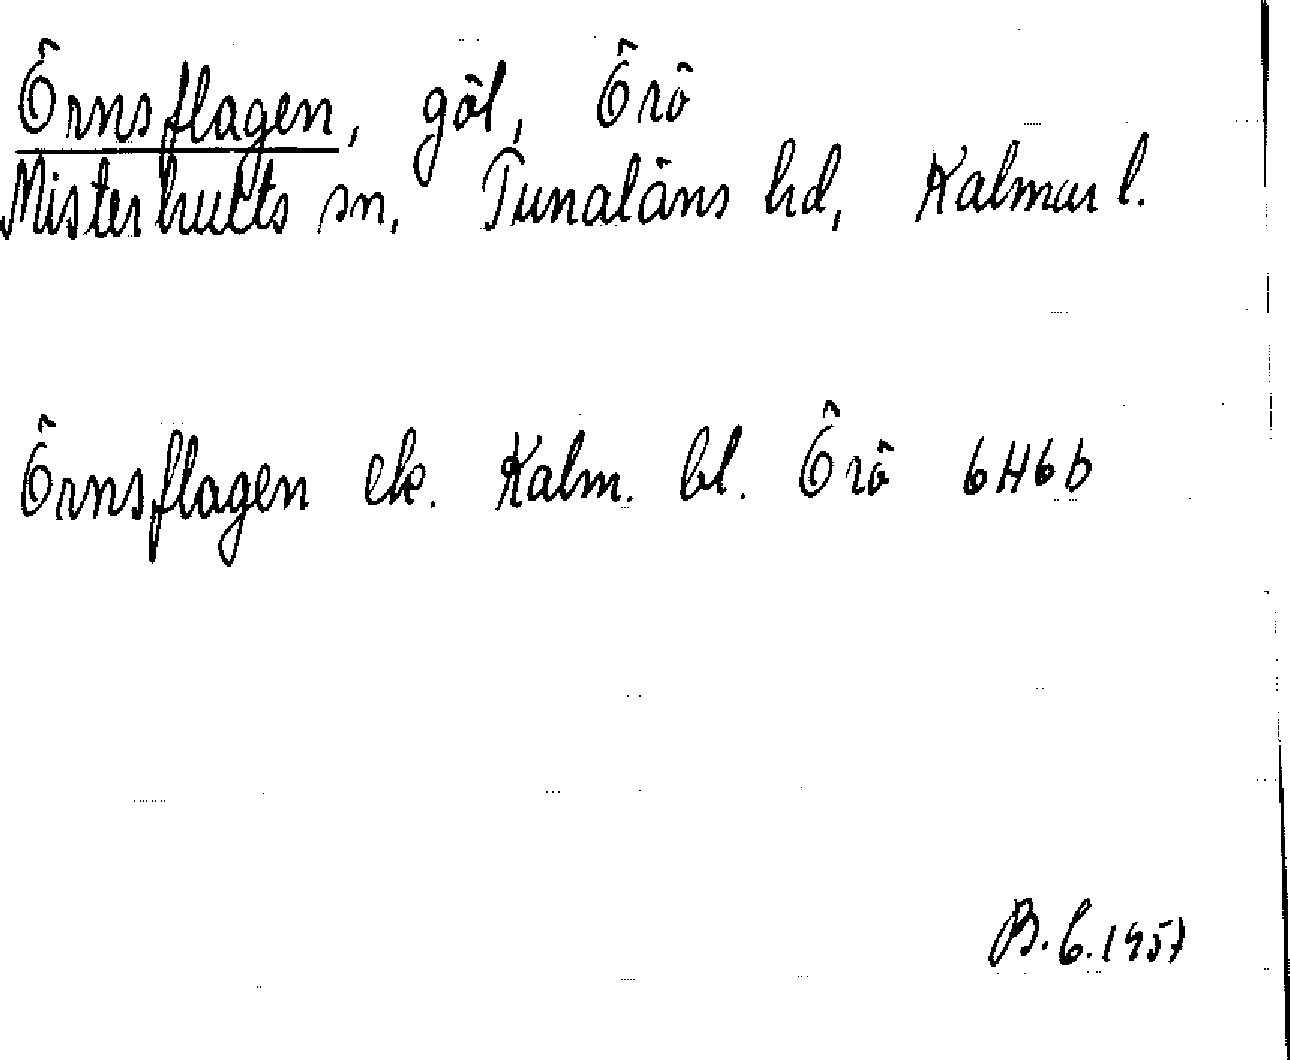 Örnsflagen, göl, Örö
Misterhults sn, Tunaläns hd, Kalmar l.
Örnsflagen ek. Kalm. bl. Örö 6H6b
B.C. 1957